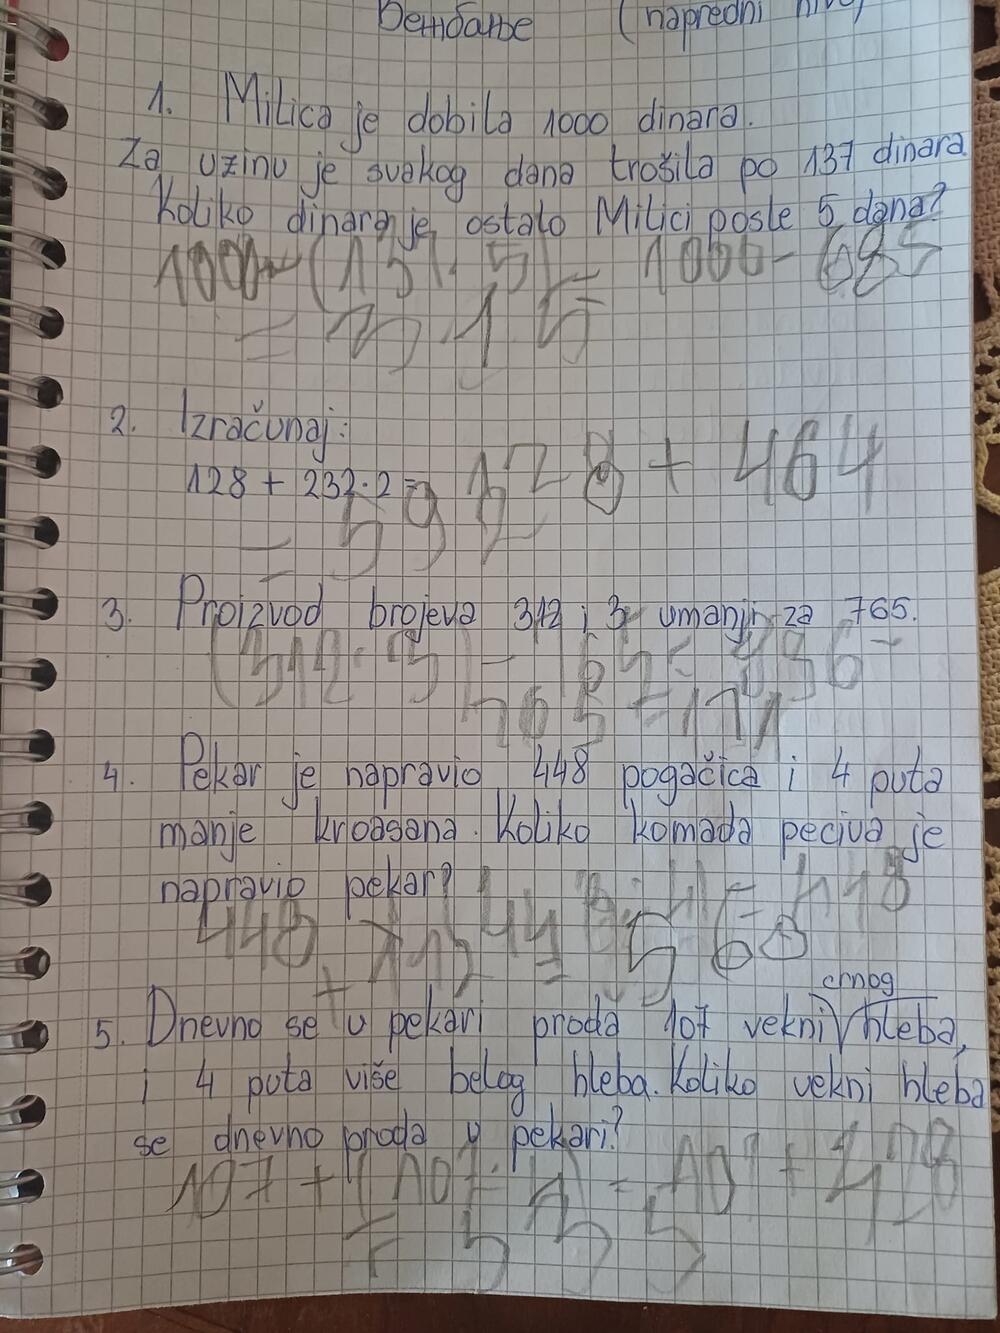 Вежбање (napredni nivo)
1. Milica je dobila 1000 dinara.
Za užinu je svakog dana trošila po 137 dinara.
Koliko dinara je ostalo Milici posle 5 dana?
1000 - (137·5) = 1000 - 685
= 315
2. Izračunaj:
128 + 232·2 = 128 + 464
= 592
3. Proizvod brojeva 312 i 3 umanji za 765.
(312·3) - 765 = 936 -
765 = 171
4. Pekar je napravio 448 pogačica i 4 puta
manje kroasana. Koliko komada peciva je
napravio pekar?
448 + (448:4) = 448
+ 112 = 560
5. Dnevno se u pekari proda 107 vekni crnog hleba,
i 4 puta više belog hleba. Koliko vekni hleba
se dnevno proda u pekari?
107 + (107·4) = 107 + 428
= 535